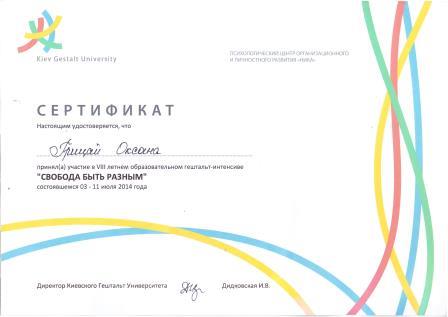 Kiev Gestalt University
ПСИХОЛОГИЧЕСКИЙ ЦЕНТР ОРГАНИЗАЦИОННОГО
И ЛИЧНОСТНОГО РАЗВИТИЯ «НИКА»
СЕРТИФИКАТ
Настоящим удостоверяется, что
Грицай Оксана
принял(а) участие в VIII летнем образовательном гештальт-интенсиве
"СВОБОДА БЫТЬ РАЗНЫМ"
состоявшемся 03 - 11 июля 2014 года
Директор Киевского Гештальт Университета Дидковская И.В.